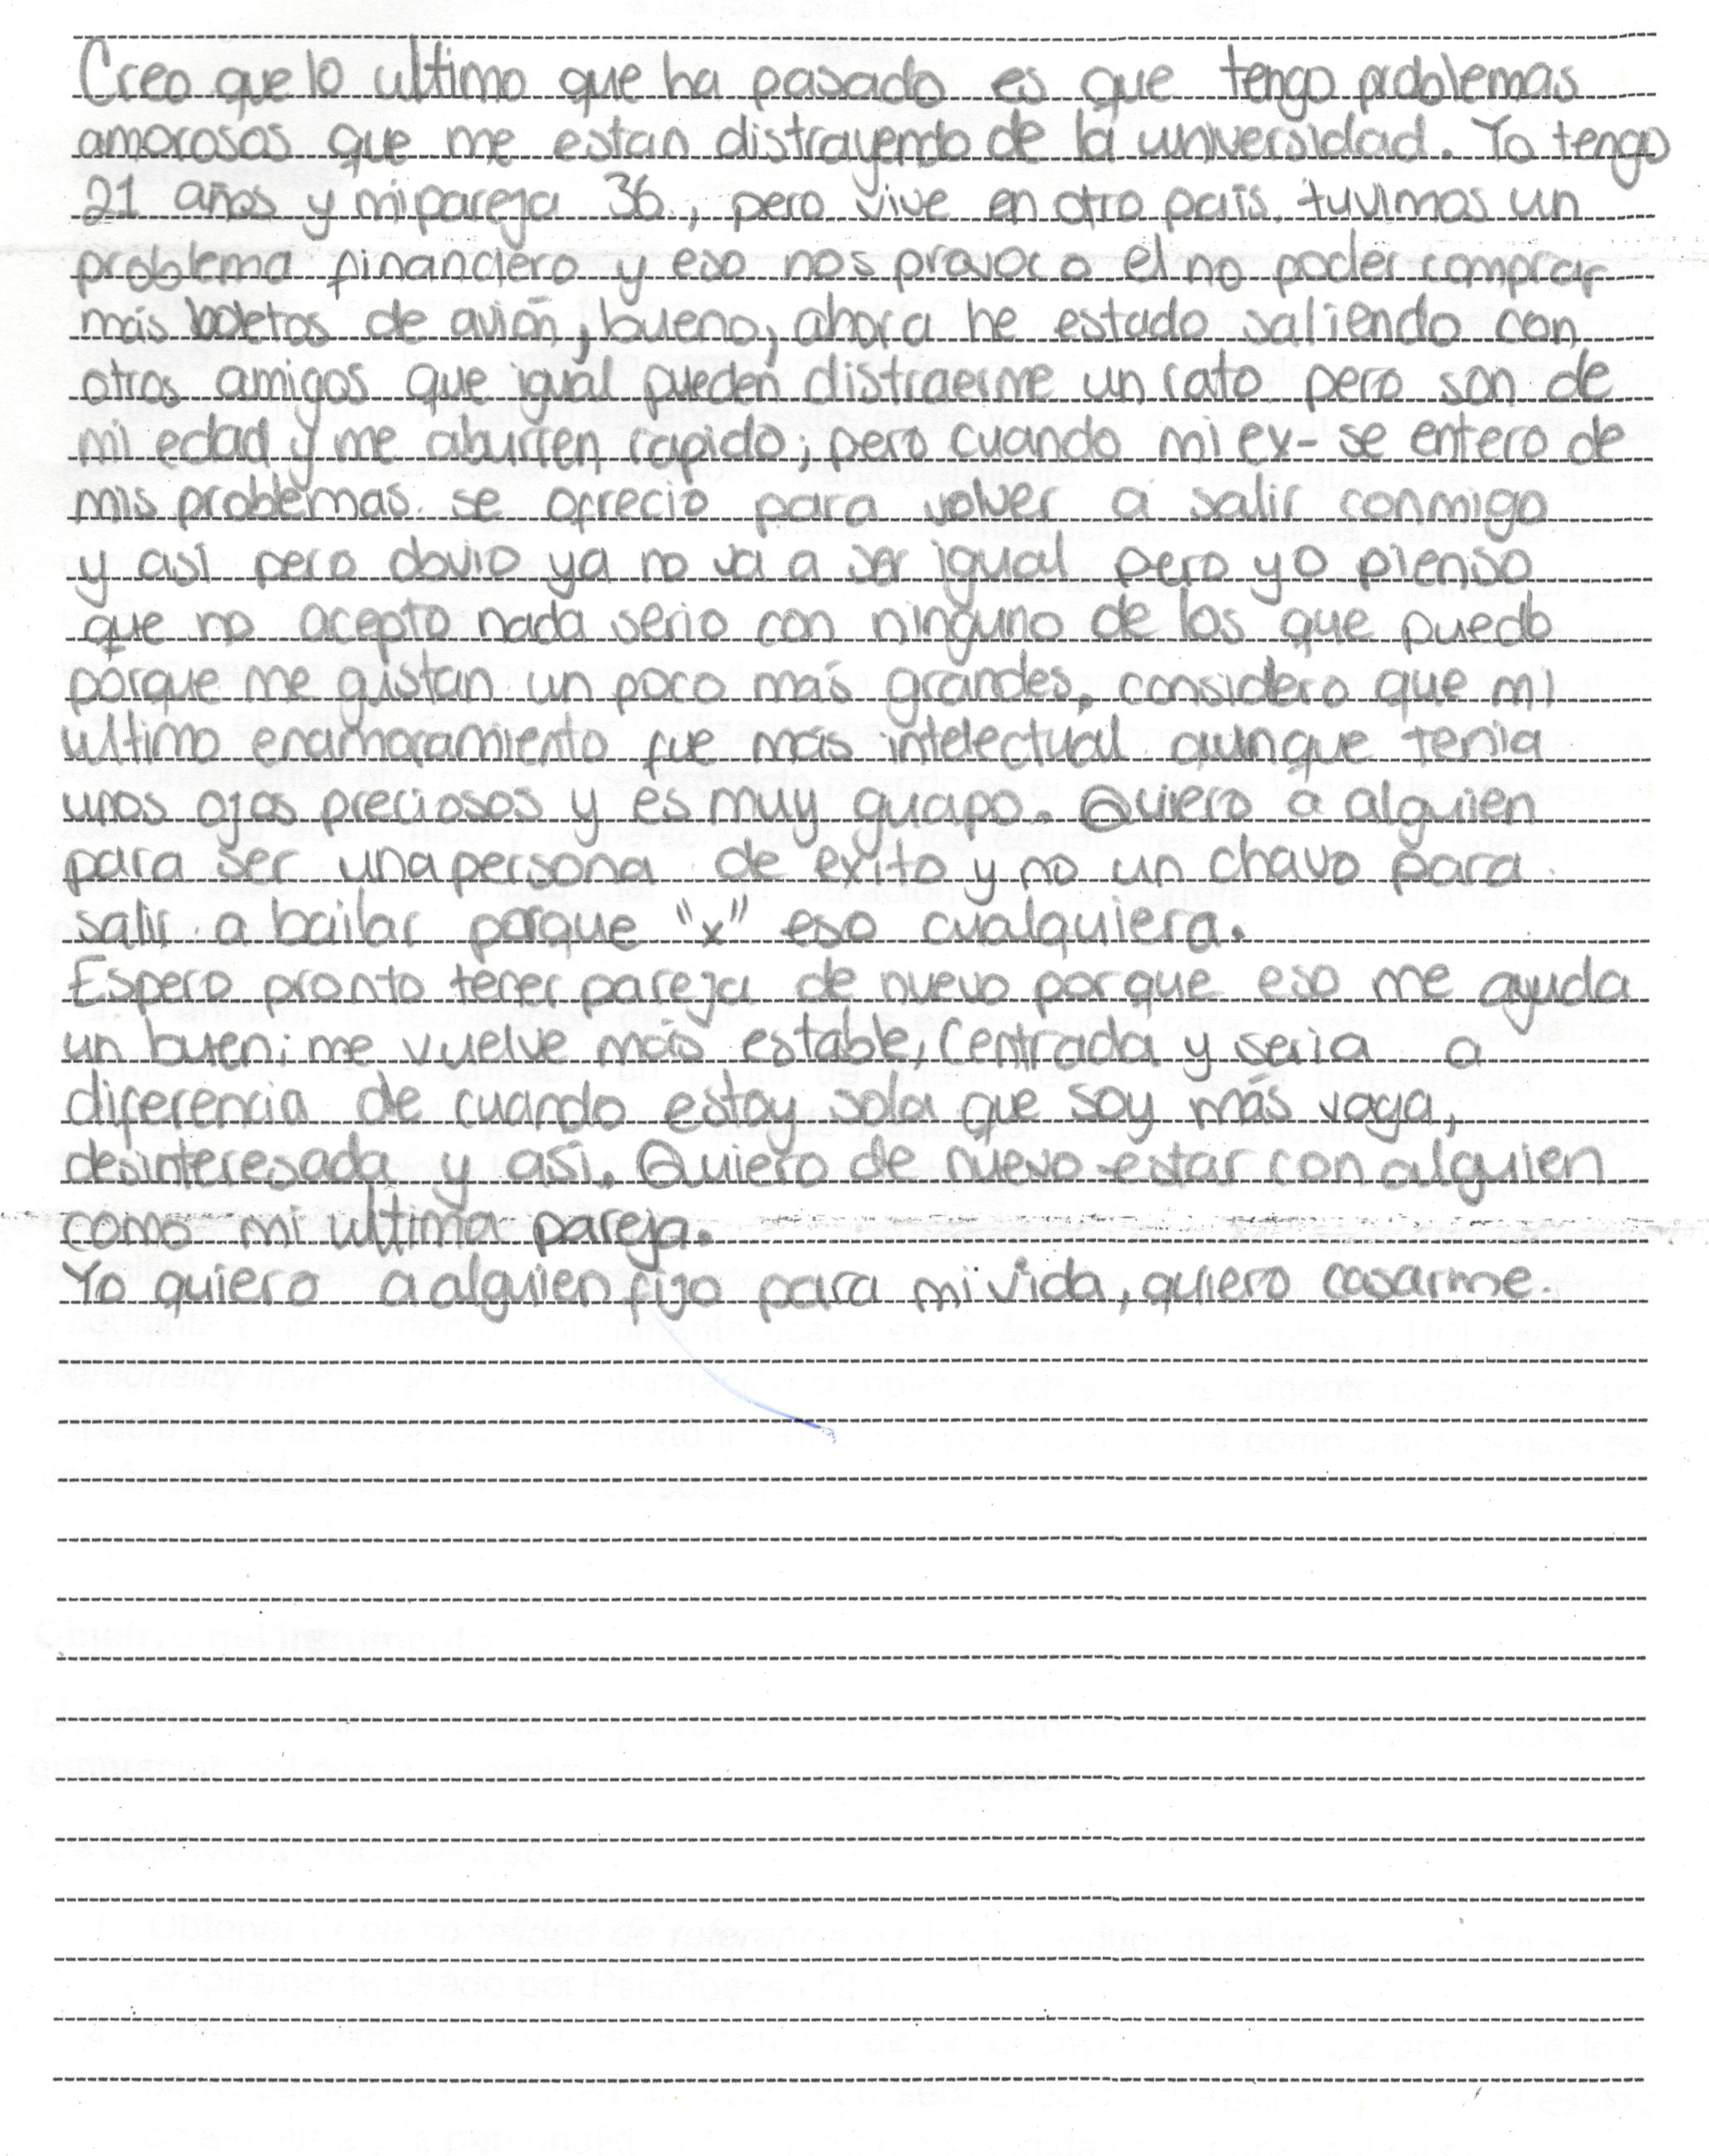 Creo que lo ultimo que ha pasado es que tengo problemas
amorosos que me estan distrayendo de la universidad. Yo tengo
21 años y mi pareja 36, pero vive en otro país. tuvimos un
problema financiero y eso nos provoco el no poder comprar
más boletos de avión, bueno, ahora he estado saliendo con
otros amigos que igual pueden distraerme un rato pero son de
mi edad y me aburren rapido; pero cuando mi ex- se entero de
mis problemas se ofrecio para volver a salir conmigo
y así pero obvio ya no va a ser igual pero yo pienso
que no acepto nada serio con ninguno de los que puedo
porque me gustan un poco más grandes, considero que mi
ultimo enamoramiento fue más intelectual aunque tenia
unos ojos preciosos y es muy guapo. Quiero a alguien
para ser una persona de exito y no un chavo para
salir a bailar porque "x" eso cualquiera.
Espero pronto tener pareja de nuevo porque eso me ayuda
un buen; me vuelve más estable, centrada y seria a
diferencia de cuando estoy sola que soy más vaga,
desinteresada y así. Quiero de nuevo estar con alguien
como mi ultima pareja.
Yo quiero a alguien fijo para mi vida, quiero casarme.